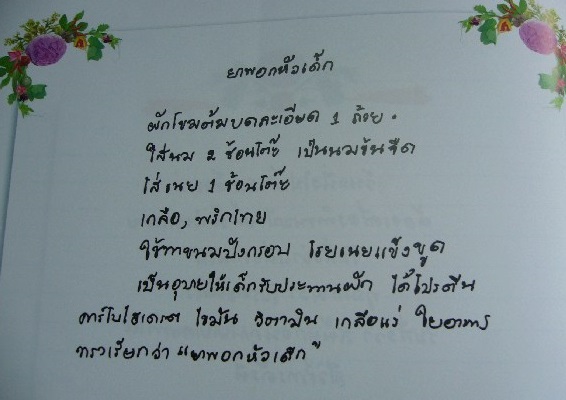 ยาพอกหัวเด็ก
ผักโขมต้มบดละเอียด 1 ถ้วย.
ใส่นม 2 ช้อนโต๊ะ เป็นนมข้นจืด
ใส่เนย 1 ช้อนโต๊ะ
เกลือ, พริกไทย
ใช้ทาขนมปังกรอบ โรยเนยแข็งขูด
เป็นอุบายให้เด็กรับประทานผัก ได้โปรตีน
คาร์โบไฮเดรต ไขมัน วิตามิน เกลือแร่ ใยอาหาร
เราเรียกว่า "ยาพอกหัวเด็ก"